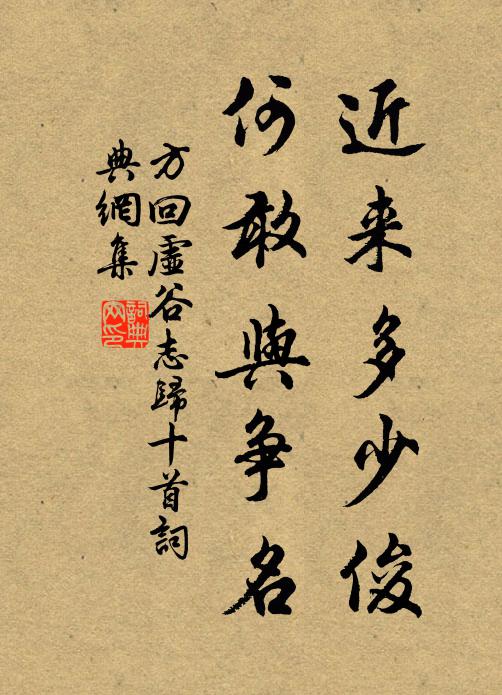 近来多少俊
何敢與争名
方回虛谷志歸十首詞
典網集
詞典
网印